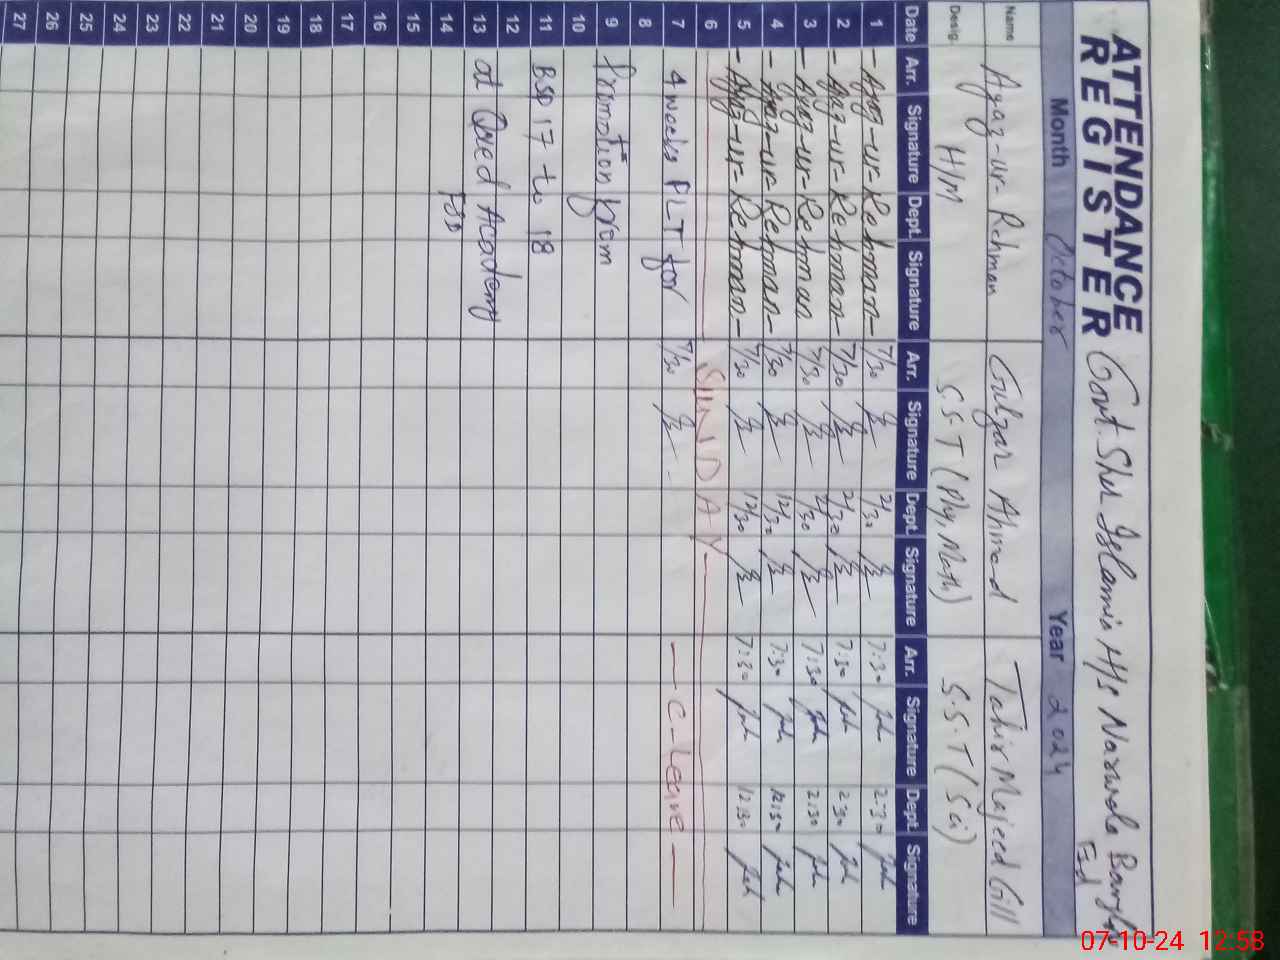 ATTENDANCE REGISTER Govt. Sher Islamia H/s Narwala Bangla Fsd
Month October Year 2024
Name Ayaz-ur-Rehman Gulzar Ahmad Tahir Majeed Gill
Desig. H/M S.S.T (Phy, Math) S.S.T (Sci)
Date Arr. Signature Dept. Signature Arr. Signature Dept. Signature Arr. Signature Dept. Signature
1 - Ayaz-ur-Rehman - 7/30 2/30 7:30 2:30
2 - Ayaz-ur-Rehman - 7/30 2/30 7:30 2 30
3 - Ayaz-ur-Rehman 7/30 2/30 7:30 2:30
4 - Ayaz-ur-Rehman - 7/30 12/30 7:30 12:30
5 - Ayaz-ur-Rehman - 7/30 12/30 7:30 12:30
6 SUNDAY
7 4 weeks PLT for 7/30 - C-Leave -
8
9 Promotion from
10
11 BSP 17 to 18
12
13 at Qaed Academy
14 FSD
15
16
17
18
19
20
21
22
23
24
25
26
27
07-10-24 12:58